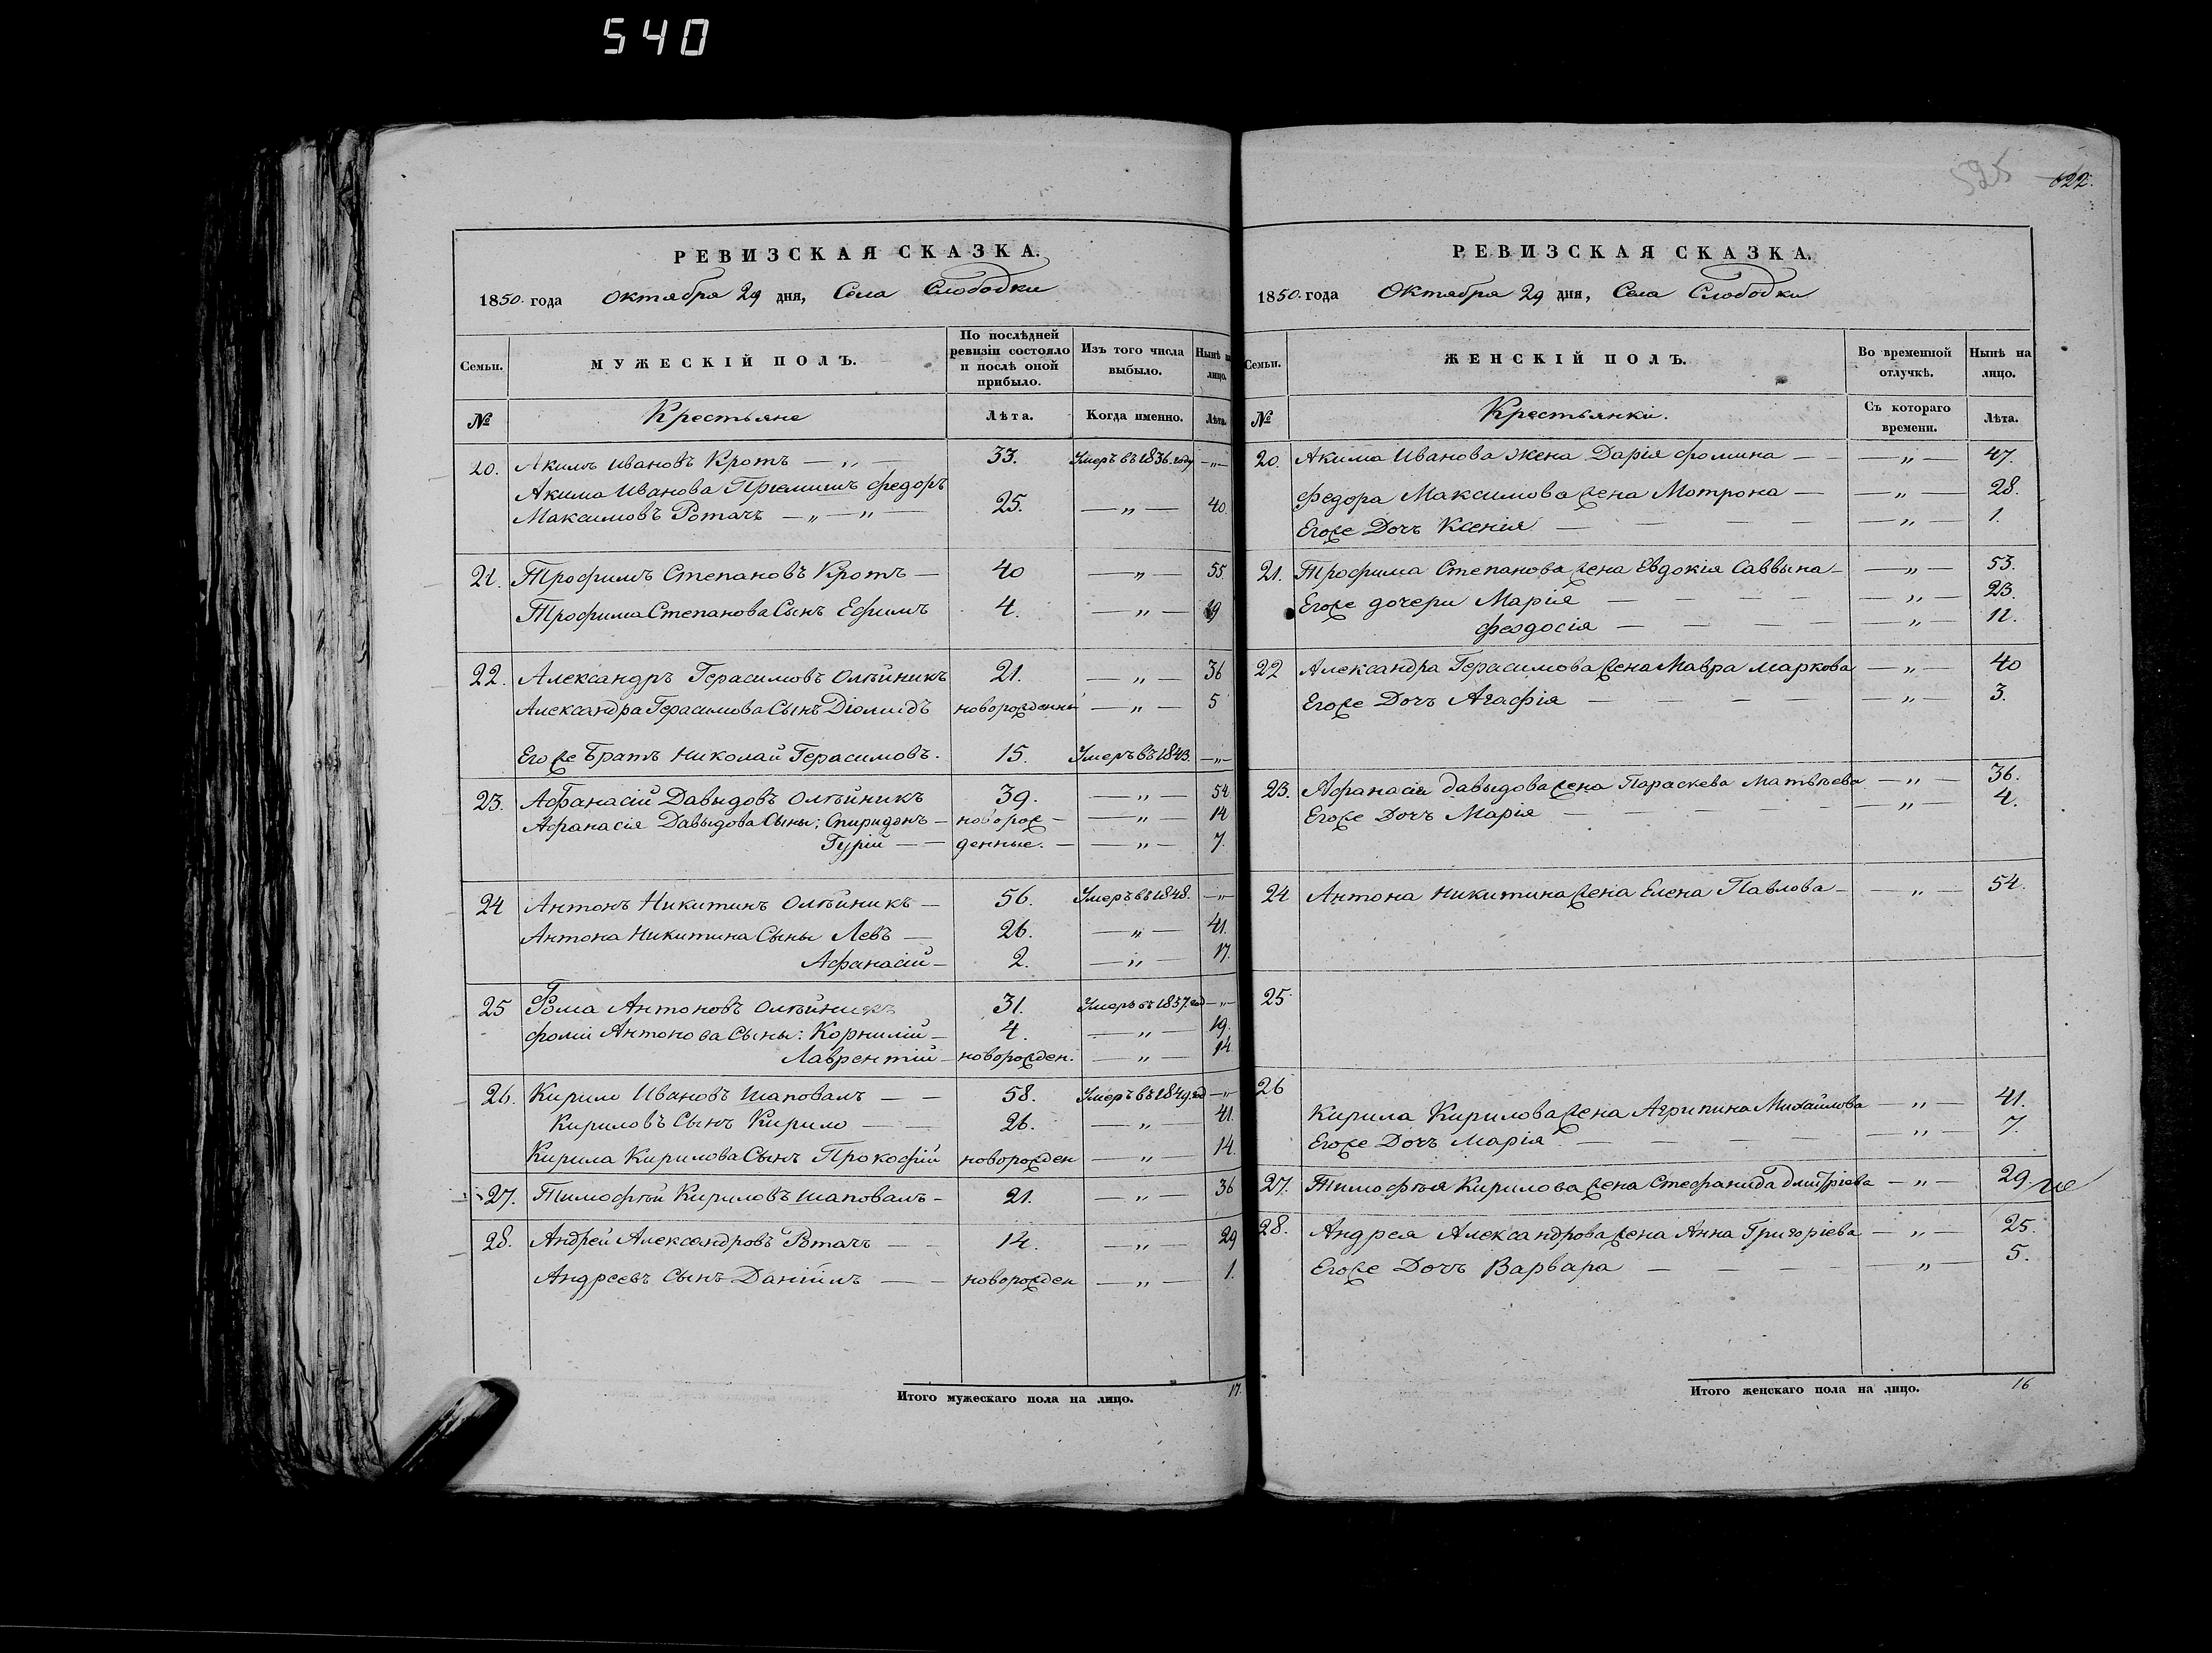 540
525 622.
РЕВИЗСКАЯ СКАЗКА.
1850. года Октября 29 дня, Села Слободки
Семьи. МУЖЕСКІЙ ПОЛЪ. По послѣдней ревизіи состояло и послѣ оной прибыло. Изъ того числа выбыло. Нынѣ на лицо.
№ Крестьяне Лѣта. Когда именно. Лѣта.
20. Акимъ Ивановъ Кротъ — „ — 33. Умеръ въ 1836. году — „ —
Акима Иванова Пріемышъ Федоръ
Максимовъ Ротачъ — „ — „ — 25. — „ — 40.
21. Трофимъ Степановъ Кротъ — 40 — „ — 55.
Трофима Степанова Сынъ Ефимъ 4. — „ — 19
22. Александръ Герасимовъ Олѣйникъ 21. — „ — 36
Александра Герасимова Сынъ Діомидъ новорожденны — „ — 5
Егоже Братъ Николай Герасимовъ. 15. Умеръ въ 1843. — „ —
23. Афанасій Давыдовъ Олѣйникъ 39. — „ — 54
Афанасія Давыдова Сыны; Спиридонъ — новорож — — „ — 14
Гурій — — денные. — — „ — 7.
24 Антонъ Никитинъ Олѣйникъ — 56. Умеръ въ 1848. — „ —
Антона Никитина Сыны Левъ — 26. — „ — 41.
Афанасій — 2. — „ — 17.
25 Фома Антоновъ Олѣйникъ 31. Умеръ въ 1837. год — „ —
Фомы Антонова Сыны: Корнилій — 4. — „ — 19.
Лаврентій — новорожден. — „ — 14
26. Кирило Ивановъ Шаповалъ — — 58. Умеръ въ 1849. год — „ —
Кириловъ Сынъ Кирило — — 26. — „ — 41.
Кирила Кирилова Сынъ Прокофій новорожден — „ — 14.
27. Тимофѣй Кириловъ Шаповалъ — 21. — „ — 36
28. Андрей Александровъ Ротачъ — — 14. — „ — 29
Андреевъ Сынъ Даніилъ — — новорожден — „ — 1.
Итого мужескаго пола на лицо. 17.
РЕВИЗСКАЯ СКАЗКА.
1850. года Октября 29 дня, Села Слободки
Семьи. ЖЕНСКІЙ ПОЛЪ. Во временной отлучкѣ. Нынѣ на лицо.
№ Крестьянки. Съ котораго времени. Лѣта.
20. Акима Иванова жена Дарія Фомина — — „ — 47.
Федора Максимова жена Мотрона — — „ — 28.
Егоже Дочъ Ксенія — — — — — „ — 1.
21. Трофима Степанова жена Евдокія Саввына — — „ — 53.
Егоже дочери Марія — — — — — „ — 23.
Феодосія — — — — — „ — 12.
22 Александра Герасимова жена Мавра Маркова — „ — 40
Егоже Дочъ Агафія — — — — — „ — 3.
23. Афанасія Давыдова жена Параскева Матвѣева — „ — 36.
Егоже Дочъ Марія — — — — „ — 4.
24 Антона Никитина жена Елена Павлова — — „ — 54.
25
26
Кирила Кирилова жена Агрипина Михайлова — „ — 41.
Егоже Дочъ Марія — — — — — „ — 7.
27. Тимофѣя Кирилова жена Стефанида Дмитріева — „ — 29.
28. Андрея Александрова жена Анна Григоріева — „ — 25.
Егоже Дочъ Варвара — — — — — „ — 5.
Итого женскаго пола на лицо. 16